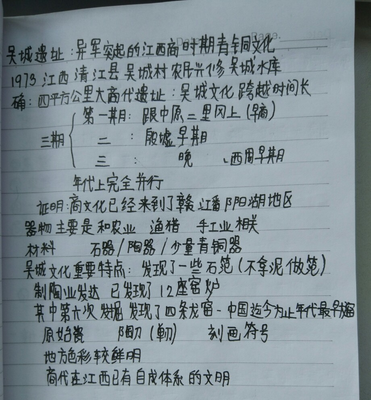 吴城遗址：异军突起的江西商时期青铜文化
1973 江西清江县吴城村农民兴修吴城水库
确：四平方公里大商代遗址：吴城文化 跨越时间长
第一期：跟中原二里冈上（早商）
三期 二：殷墟早期
三： 晚、西周早期
年代上完全并行
证明：商文化已经来到了赣江 鄱阳湖地区
器物主要是和农业 渔猎 手工业相关
材料 石器/陶器/少量青铜器
吴城文化重要特点：发现了一些石范（不拿泥做范）
制陶业发达 已发现了12座窑炉
其中第六次发掘发现了四条龙窑-中国迄今为止年代最早龙窑
原始瓷 陶刀 刻画符号
地方色彩较鲜明
商代在江西已有自成体系的文明